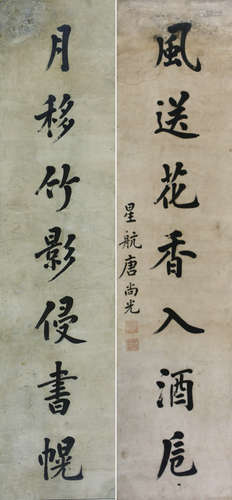 風送花香入酒巵
星航唐尚光
月移竹影侵書幌